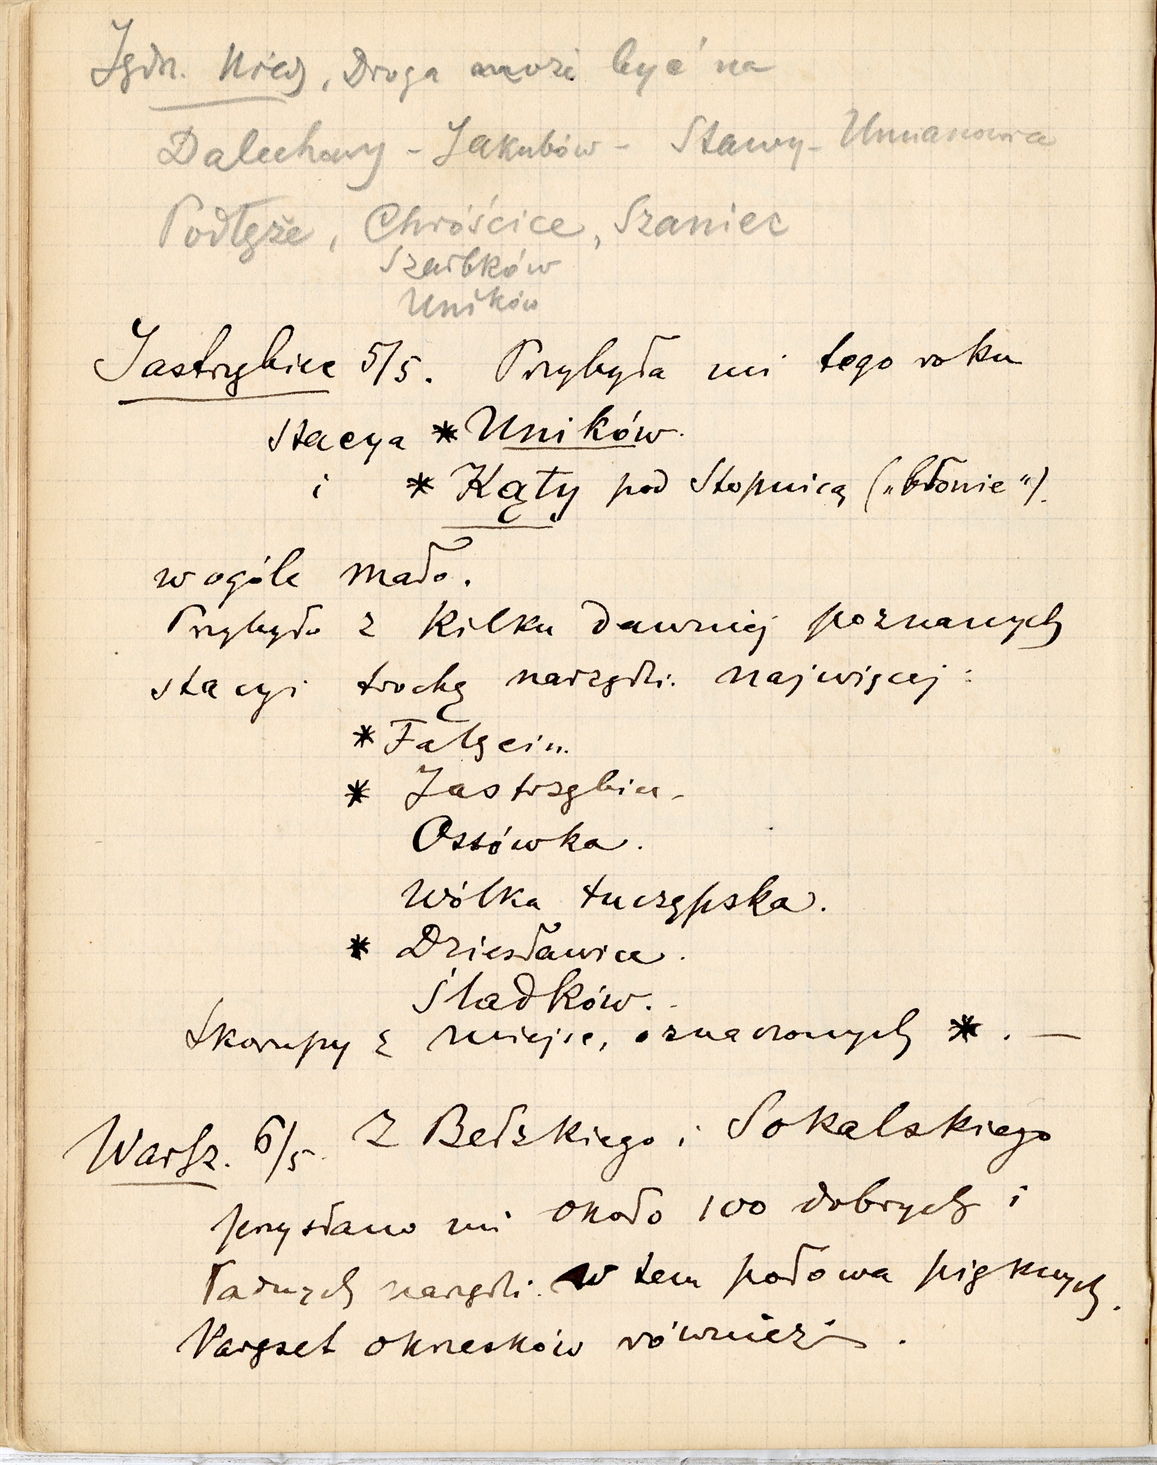 Jędn. Nied, Droga może być na
Dalechowy - Jakubów - Stawy - Umianowice
Podłęże, Chróścice, Szaniec
Szarbków
Uników
Jastrzębiec 5/5. Przybyła mi tego roku
stacya * Uników.
i * Kąty pod Stopnicą („błonie").
wogóle mało.
Przybyło z kilku dawniej poznanych
stacyi trochę narzędzi. najwięcej:
* Falęcin.
* Jastrzębiec -
Ossówka.
Wólka tuczępska.
* Dziesławice.
Śladków. -
Skorupy z miejsc, oznaczonych *. —
Warsz. 6/5. Z Bełzkiego i Sokalskiego
przysłano mi około 100 dobrych i
ładnych narzędzi. w tem połowa pięknych.
Paręset okrzesków również.